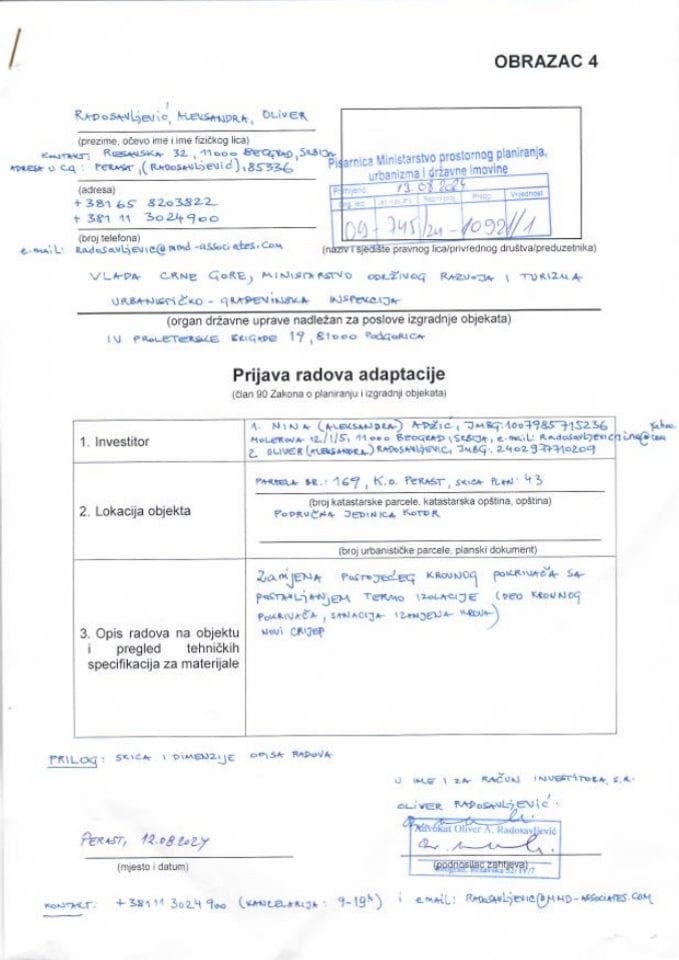 OBRAZAC 4
RADOSAVLJEVIĆ, ALEKSANDRA, OLIVER
(prezime, očevo ime i ime fizičkog lica)
KONTAKT: RESAVSKA 32, 11000 BEOGRAD, SRBIJA
ADRESA U CG: PERAST, (RADOSAVLJEVIĆ), 85336
(adresa)
+381 65 8203822
+381 11 3024900
(broj telefona)
e-mail: radosavljevic@mmd-associates.com
Pisarnica Ministarstvo prostornog planiranja,
urbanizma i državne imovine
Primljeno: 13.08.2024
Org. jed. Prilog Vrijednost
09-745/24-10921/1
(naziv i sjedište pravnog lica/privrednog društva/preduzetnika)
VLADA CRNE GORE, MINISTARSTVO ODRŽIVOG RAZVOJA I TURIZMA
URBANISTIČKO-GRAĐEVINSKA INSPEKCIJA
(organ državne uprave nadležan za poslove izgradnje objekata)
IV PROLETERSKE BRIGADE 19, 81000 PODGORICA
Prijava radova adaptacije
(član 90 Zakona o planiranju i izgradnji objekata)
1. Investitor
1. NINA (ALEKSANDRA) ADŽIĆ, JMBG: 1007985715236
MOLEROVA 12/1/5, 11000 BEOGRAD, SRBIJA, e-mail: Radosavljevicnina@yahoo.com
2. OLIVER (ALEKSANDRA) RADOSAVLJEVIC, JMBG. 2402977710209
2. Lokacija objekta
PARCELA BR.: 169, K.O. PERAST, SKICA PLAN: 43
(broj katastarske parcele, katastarska opština, opština)
PODRUČNA JEDINICA KOTOR
(broj urbanističke parcele, planski dokument)
3. Opis radova na objektu
i pregled tehničkih
specifikacija za materijale
ZAMJENA POSTOJEĆEG KROVNOG POKRIVAČA SA
POSTAVLJANJEM TERMO IZOLACIJE (DEO KROVNOG
POKRIVAČA, SANACIJA IZMJENA KROVA)
NOVI CRIJEP
PRILOG: SKICA I DIMENZIJE OPISA RADOVA
U IME I ZA RAČUN INVESTITORA, S.R.
OLIVER RADOSAVLJEVIĆ:
Advokat Oliver A. Radosavljević
PERAST, 12.08.2024
(mjesto i datum)
(podnosilac zahtjeva)
Beograd, Resavska 32/IV/7
KONTAKT: +381 11 3024 900 (KANCELARIJA: 9-19h) i EMAIL: RADOSAVLJEVIC@MMD-ASSOCIATES.COM